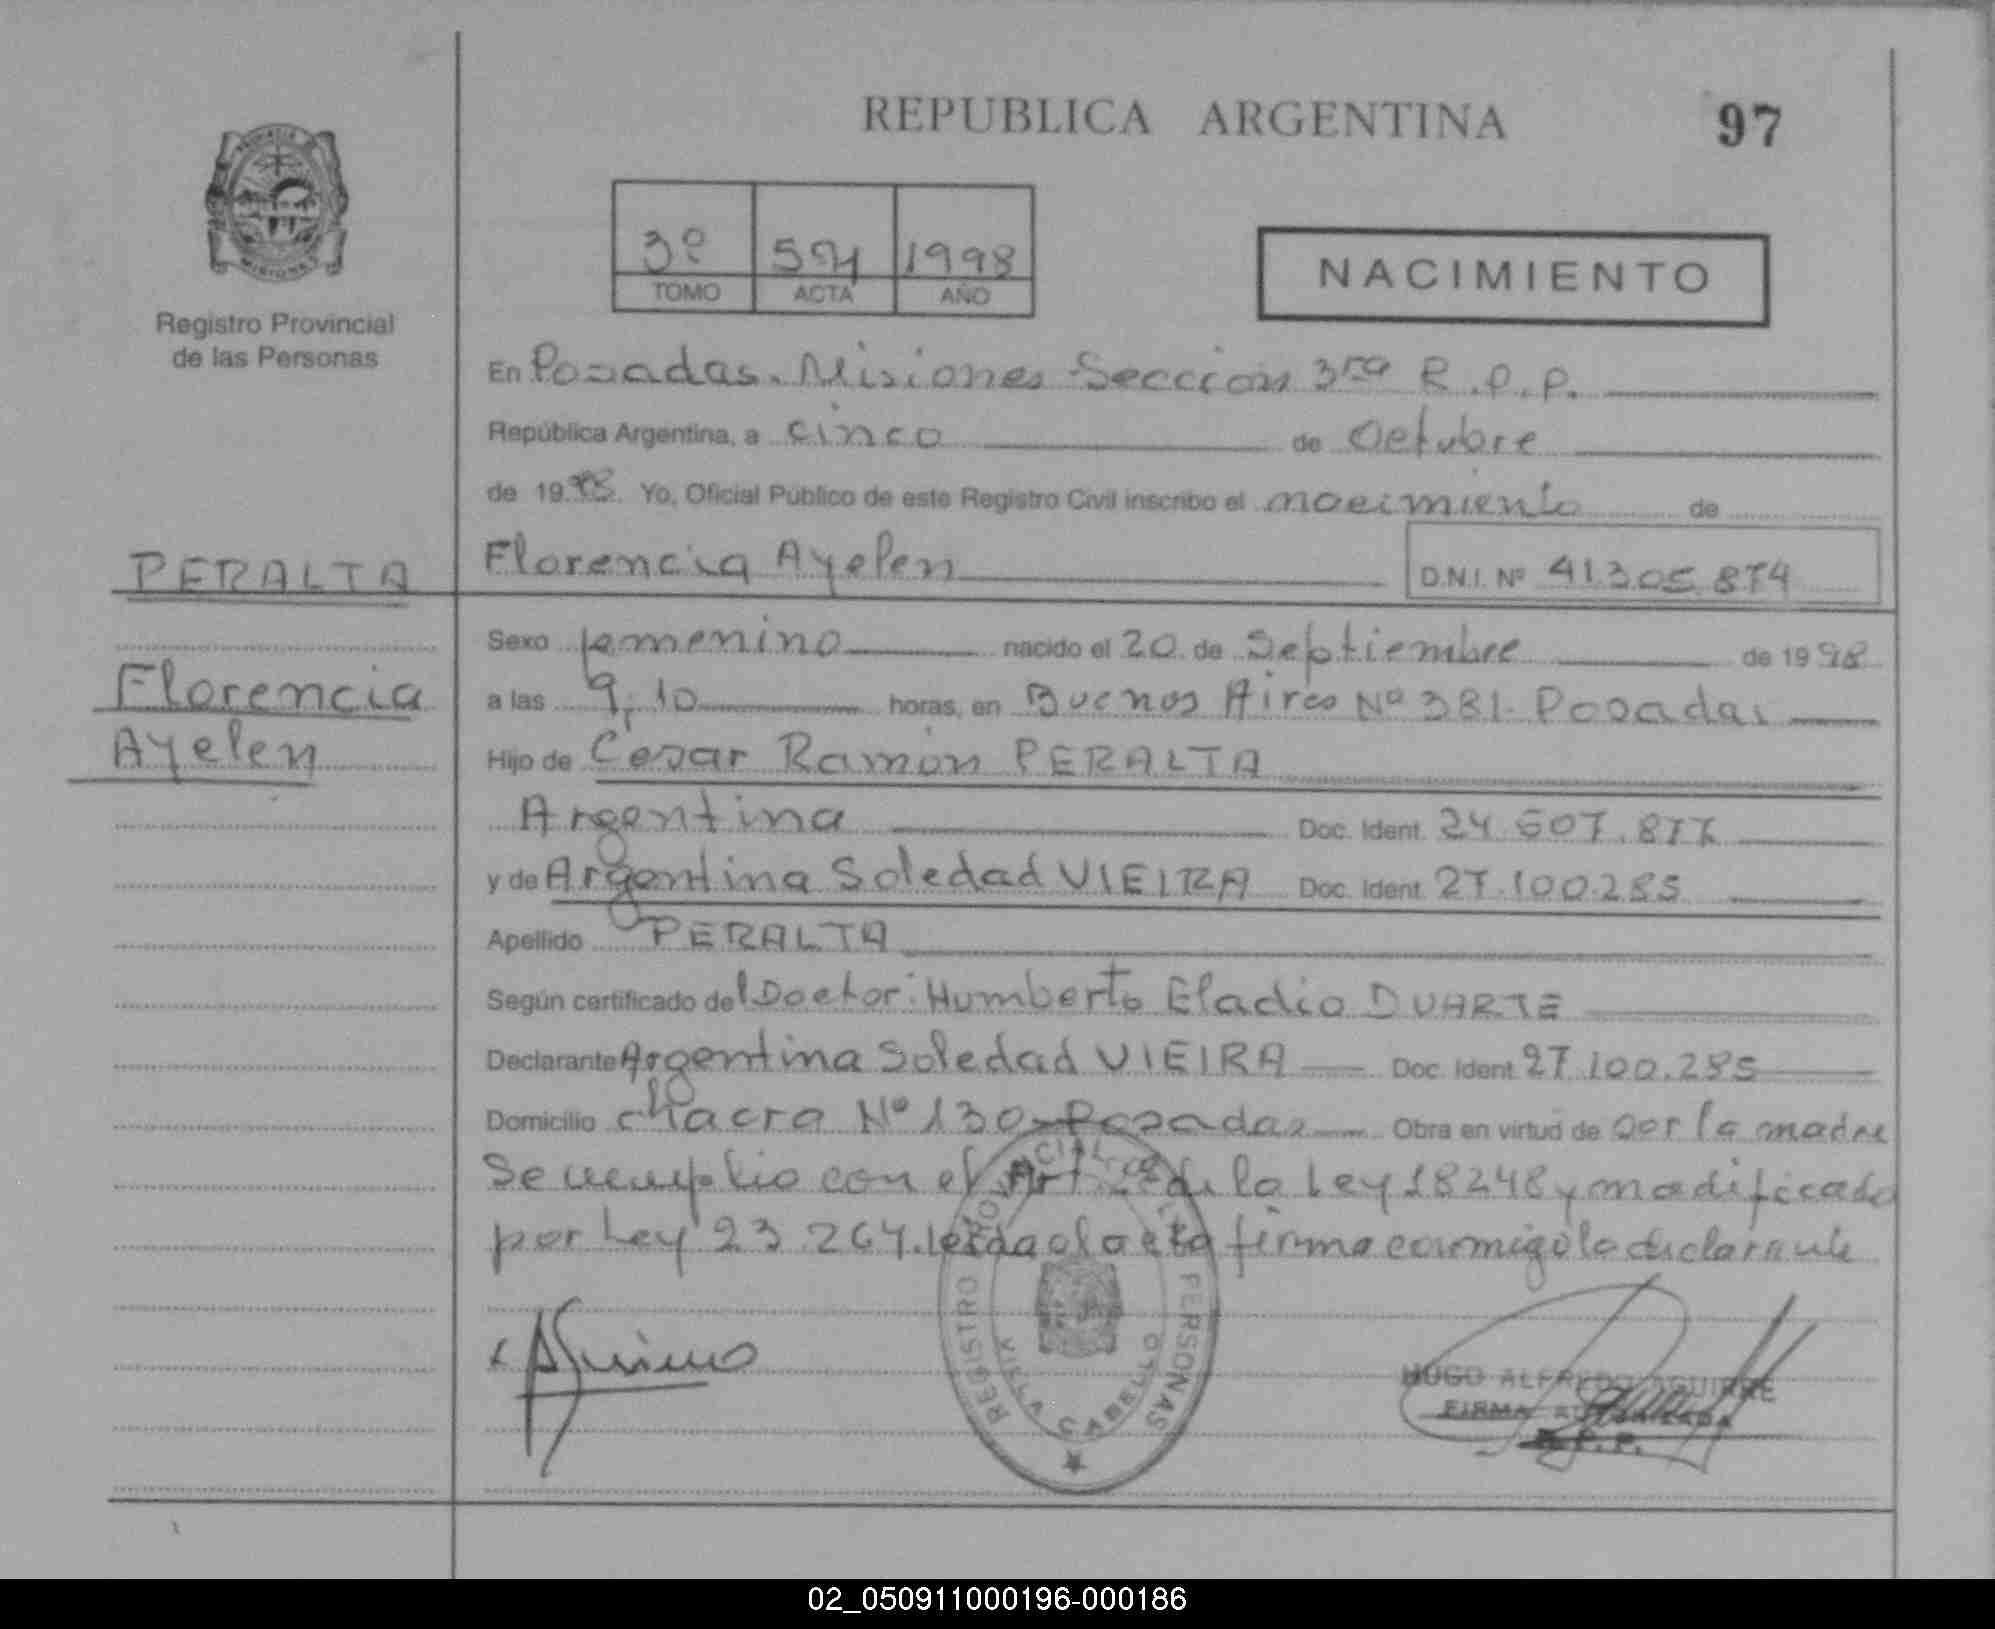 REPUBLICA ARGENTINA
97
3º
1998
TOMO
ACTA
AÑO
NACIMIENTO
PROVINCIA
MISIONES
Registro Provincial
de las Personas
En Posadas. Misiones Sección 3ra R.P.P.
República Argentina, a cinco de Octubre
de 1998. Yo, Oficial Público de este Registro Civil inscribo el nacimiento de
PERALTA
Florencia Ayelen
D.N.I. Nº 41.305.874
Sexo femenino nacido el 20 de Septiembre de 1998
Florencia
a las 9,10 horas, en Buenos Aires Nº 381. Posadas
Ayelen
Hijo de Cesar Ramón PERALTA
Argentina Doc. Ident. 24.607.877
y de Argentina Soledad VIEIRA Doc. Ident. 27.100.285
Apellido PERALTA
Según certificado del Doctor: Humberto Eladio DUARTE
Declarante Argentina Soledad VIEIRA Doc. Ident. 27.100.285
Domicilio chacra Nº 130-Posadas Obra en virtud de por la madre
Se cumplio con el Art. de la Ley 18248 y modificado
por Ley 23.264. leída el acta firma conmigo la declarante
REGISTRO PROVINCIAL DE LAS PERSONAS
VILLA CABELLO
HUGO ALFREDO AGUIRRE
FIRMA AUTORIZADA
R.P.P.
02_050911000196-000186